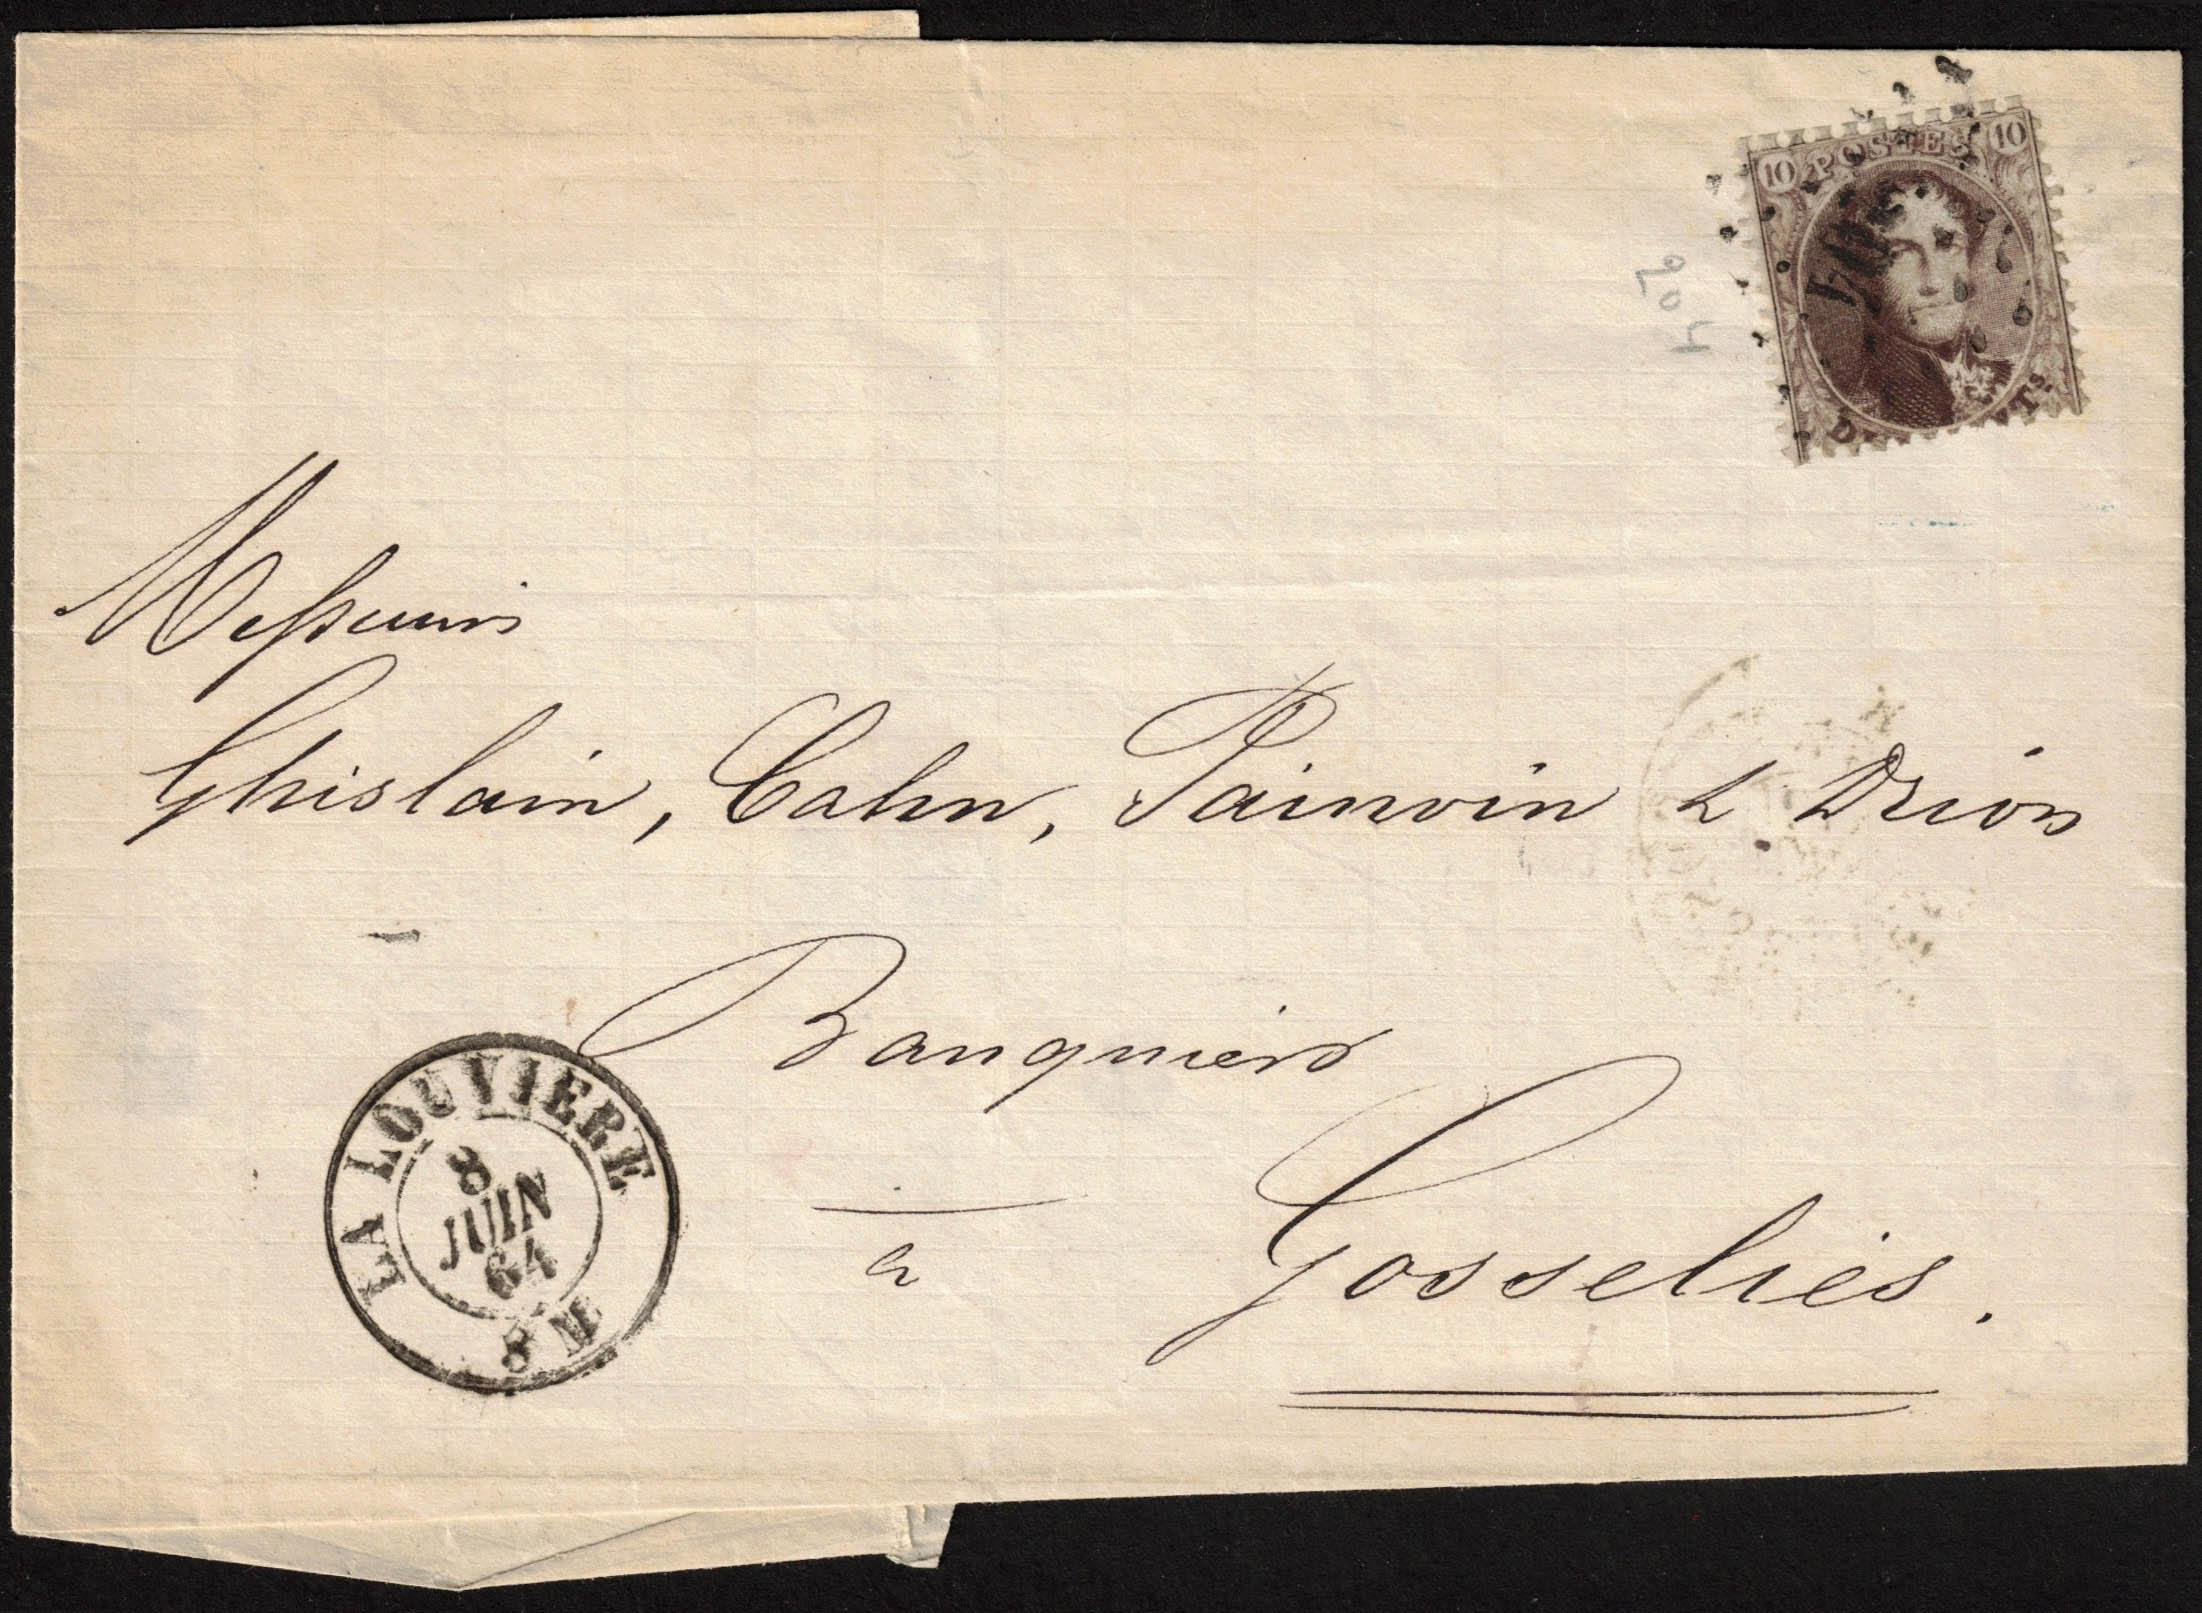 10 POSTES 10
204
Messieurs
Ghislain, Cahn, Painvin & Drion
Banquiers
à
Gosselies.
LA LOUVIERE
8
JUIN
64
8 M